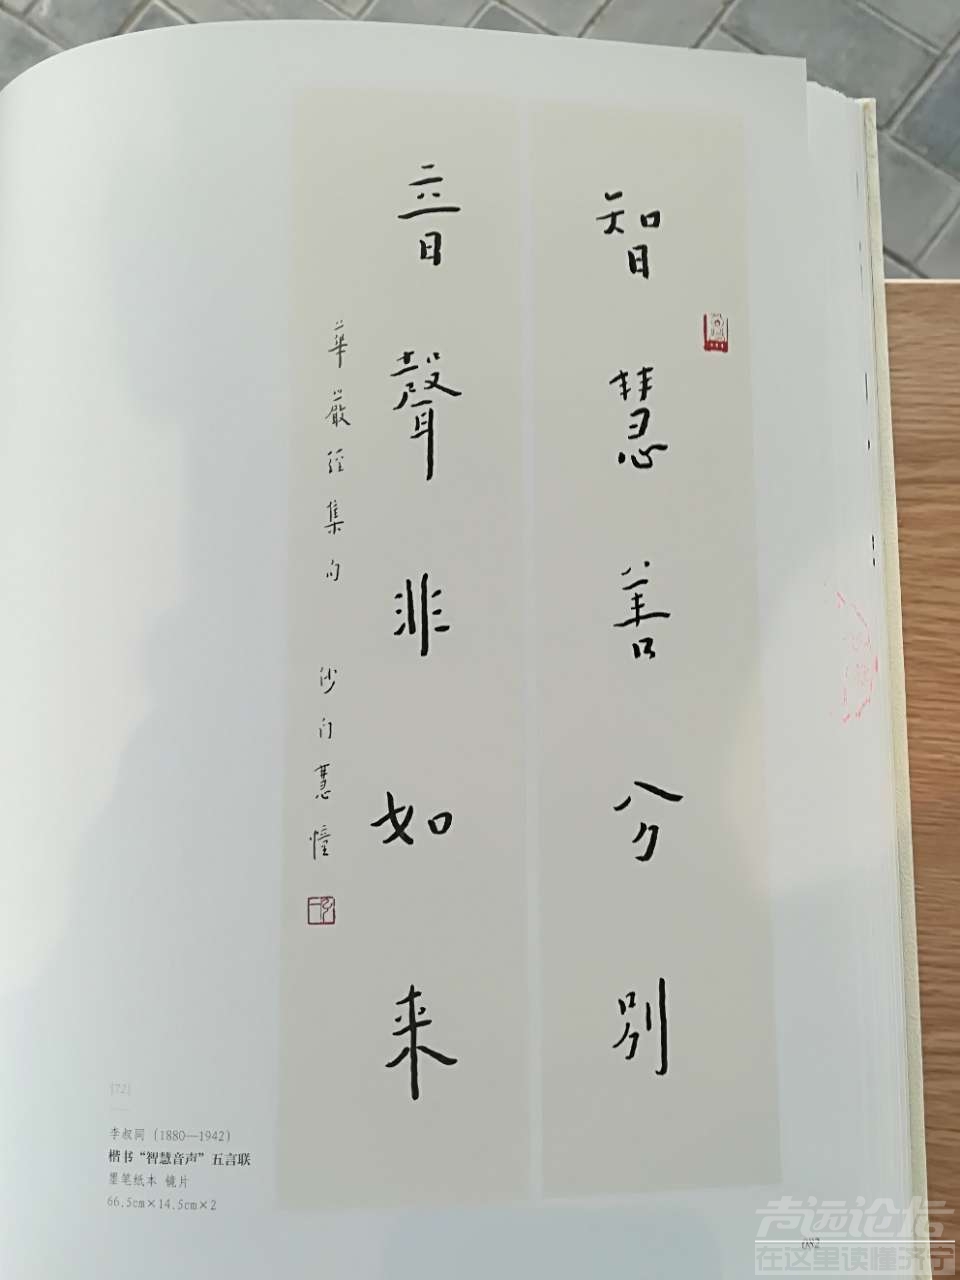 智慧善分別
音聲非如来
華嚴經集句 沙門慧幢
[72]
李叔同 (1880—1942)
楷书“智慧音声”五言联
墨笔纸本 镜片
66.5cm×14.5cm×2
082
声远论坛
在这里读懂济宁